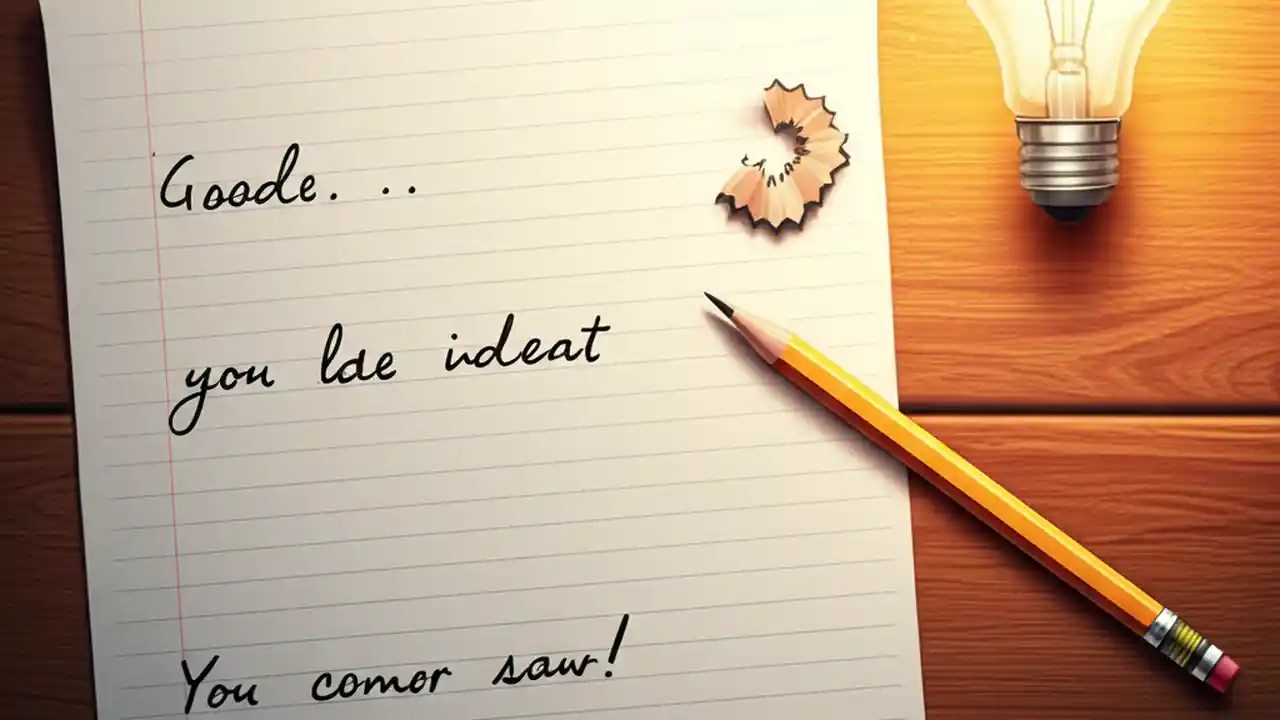 Goode. . .
you lde ideat
You comer saw!